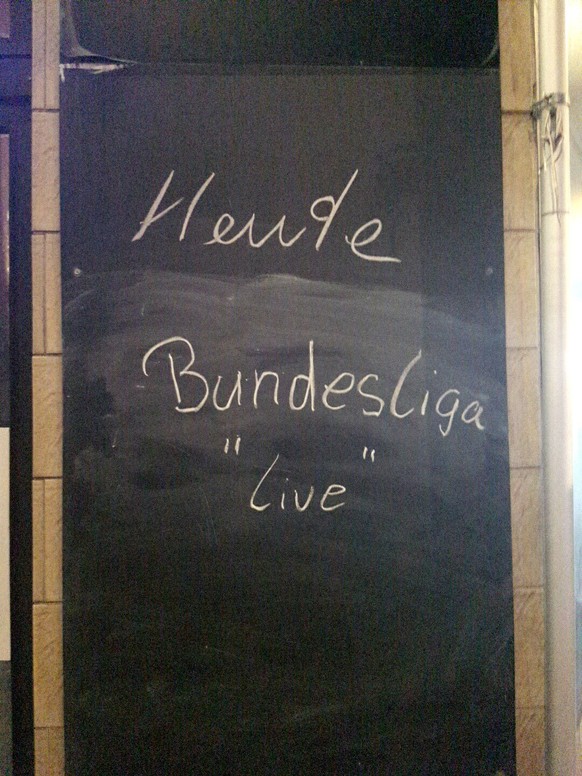 Heute
Bundesliga
"live"